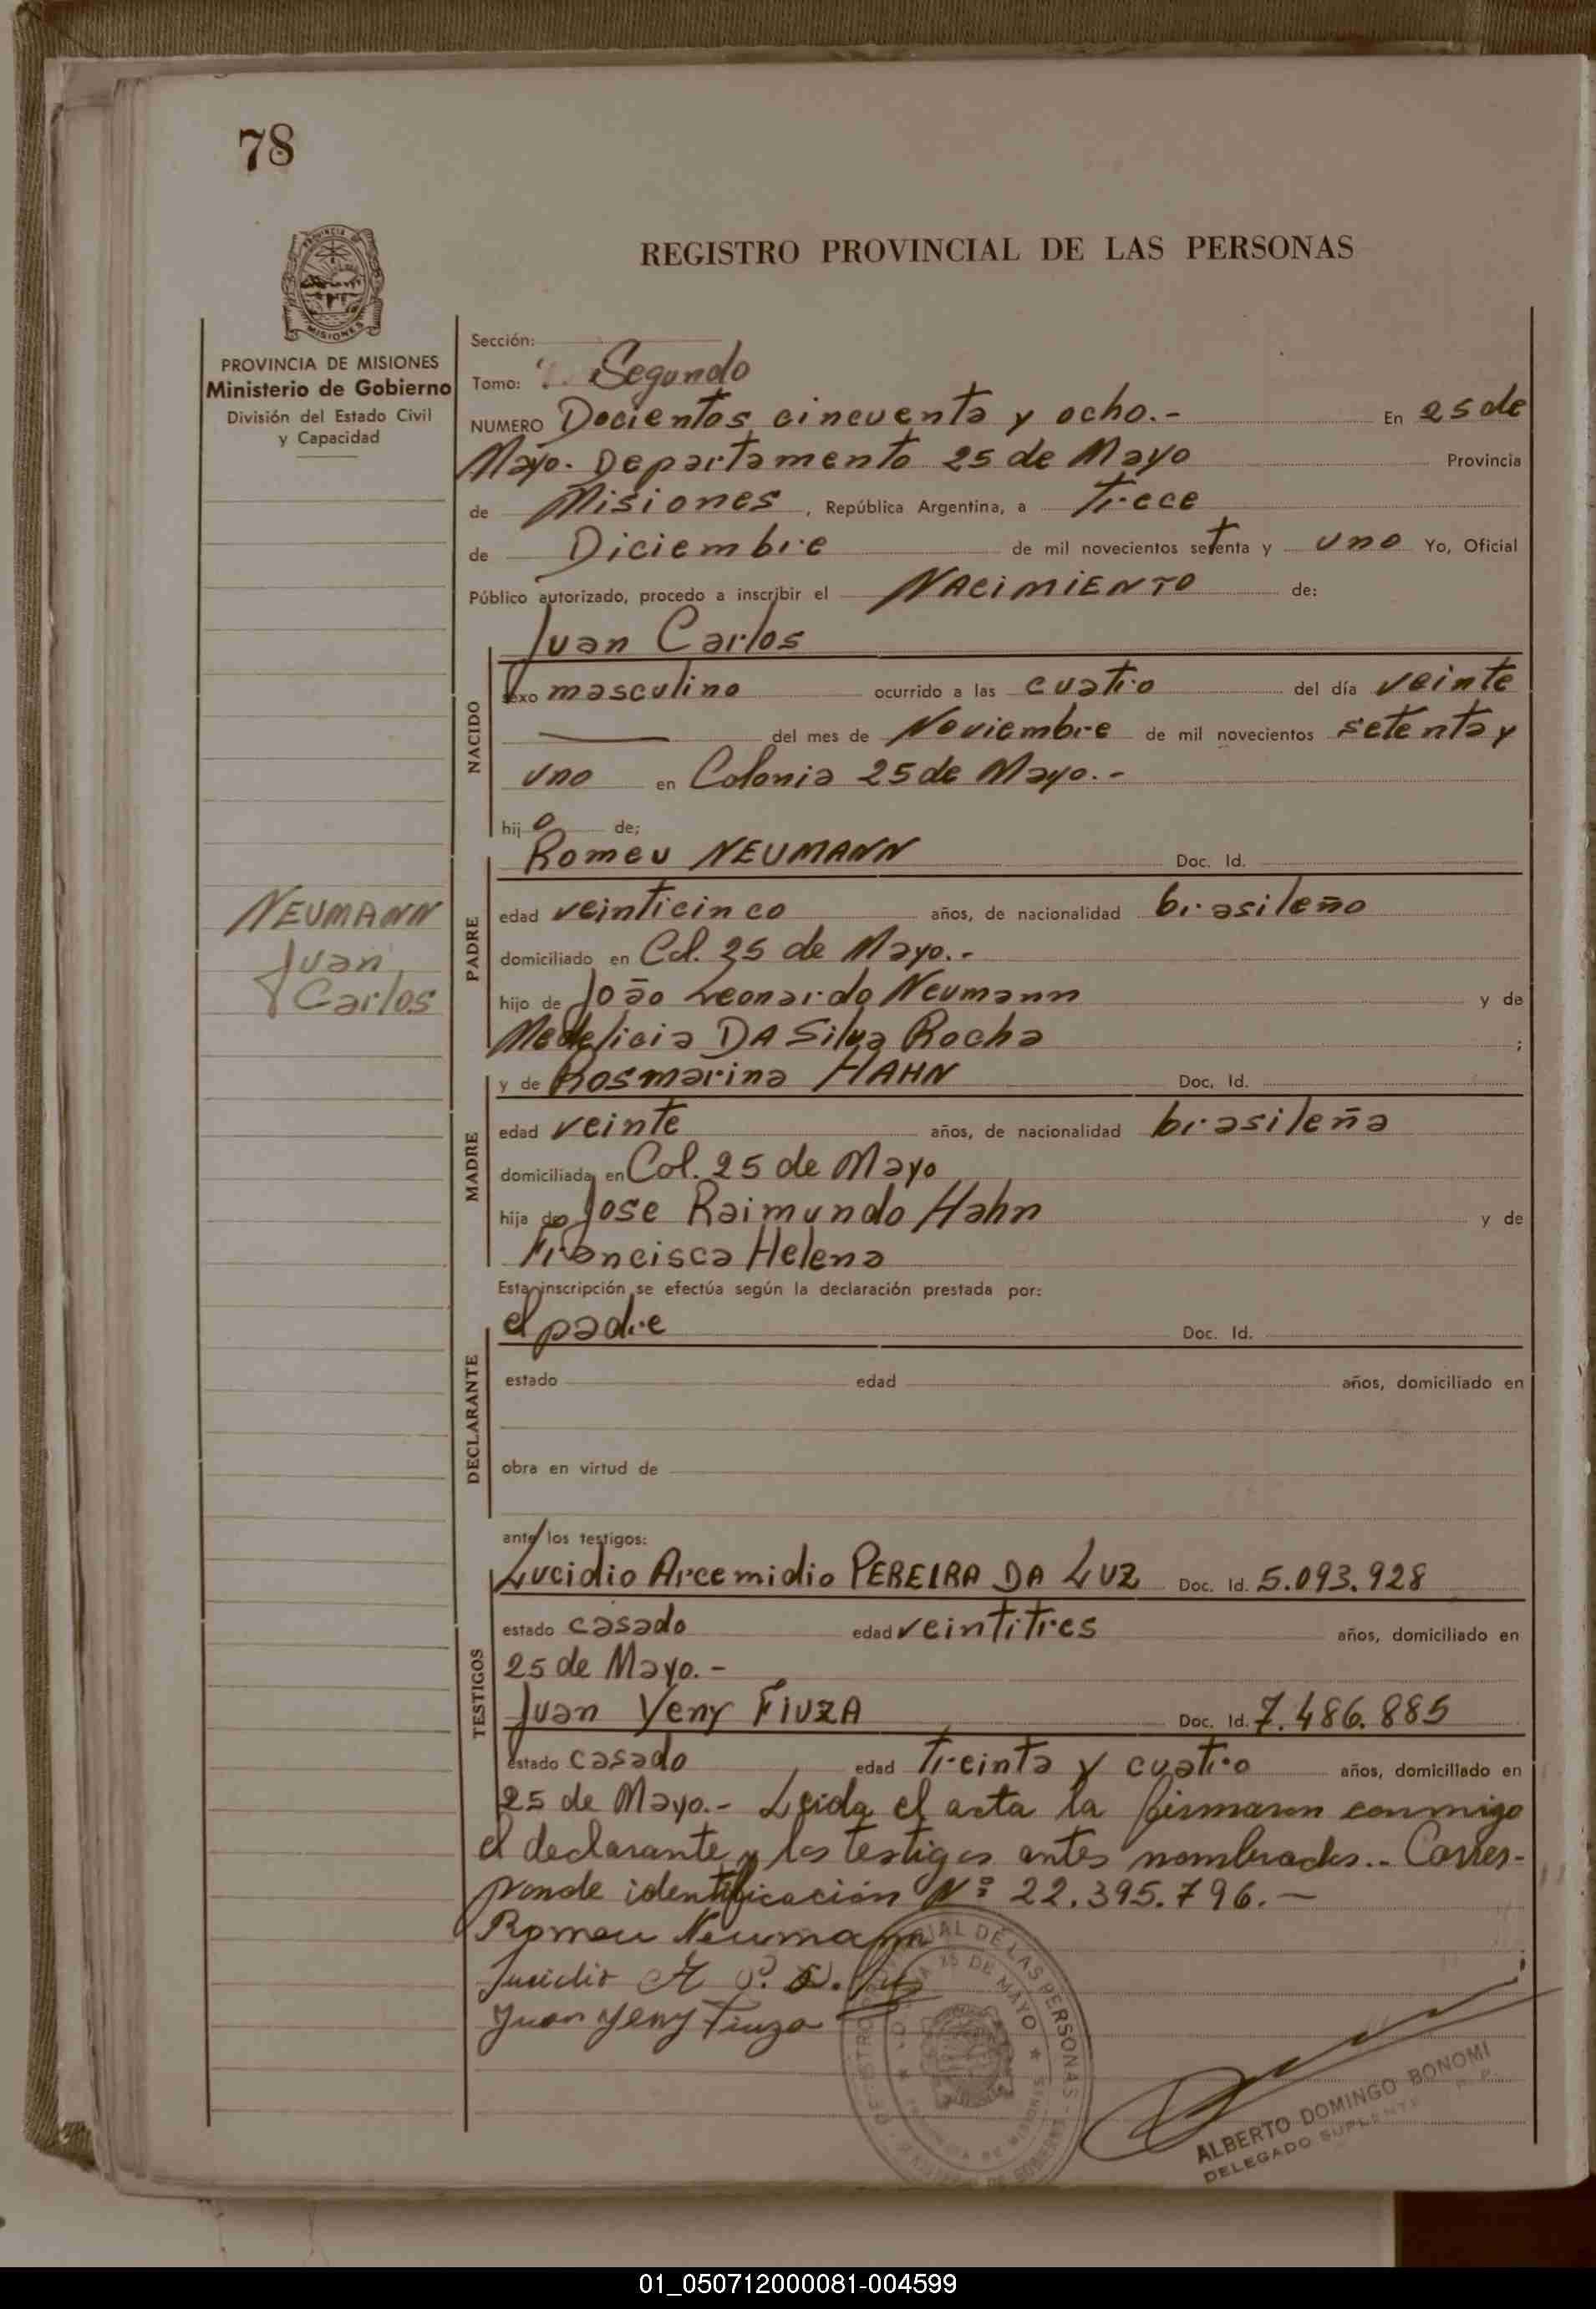 78
PROVINCIA DE
MISIONES
REGISTRO PROVINCIAL DE LAS PERSONAS
PROVINCIA DE MISIONES
Ministerio de Gobierno
División del Estado Civil
y Capacidad
Sección:
Tomo: Segundo
NUMERO Docientos cincuenta y ocho.- En 25 de
Mayo. Departamento 25 de Mayo Provincia
de Misiones, República Argentina, a Trece
de Diciembre de mil novecientos setenta y uno Yo, Oficial
Público autorizado, procedo a inscribir el NACIMIENTO de:
NACIDO
Juan Carlos
sexo masculino ocurrido a las cuatro del día veinte
del mes de Noviembre de mil novecientos setenta y
uno en Colonia 25 de Mayo.-
hijo de;
NEUMANN
Juan
Carlos
PADRE
Romeu NEUMANN Doc. Id.
edad veinticinco años, de nacionalidad brasileño
domiciliado en Col. 25 de Mayo.-
hijo de João Leonardo Neumann y de
Medelicia DA Silva Rocha ;
MADRE
y de Rosmarina HAHN Doc. Id.
edad veinte años, de nacionalidad brasileña
domiciliada en Col. 25 de Mayo
hija de Jose Raimundo Hahn y de
Francisca Helena
Esta inscripción se efectúa según la declaración prestada por:
DECLARANTE
el padre Doc. Id.
estado edad años, domiciliado en
obra en virtud de
ante los testigos:
TESTIGOS
Lucidio Arcemidio PEREIRA DA LUZ Doc. Id. 5.093.928
estado casado edad veintitres años, domiciliado en
25 de Mayo.-
Juan Yeny FIUZA Doc. Id. 7.486.885
estado casado edad treinta y cuatro años, domiciliado en
25 de Mayo.- Leida el acta la firmaron conmigo
el declarante y los testigos antes nombrados.- Corres-
ponde identificación Nº 22.395.796.-
Romeu Neumann
Lucidio A P. D. Luz
Juan Yeny Fiuza
DE LAS PERSONAS
25 DE MAYO
ALBERTO DOMINGO BONOMI
DELEGADO SUPLENTE R. P.
01_050712000081-004599